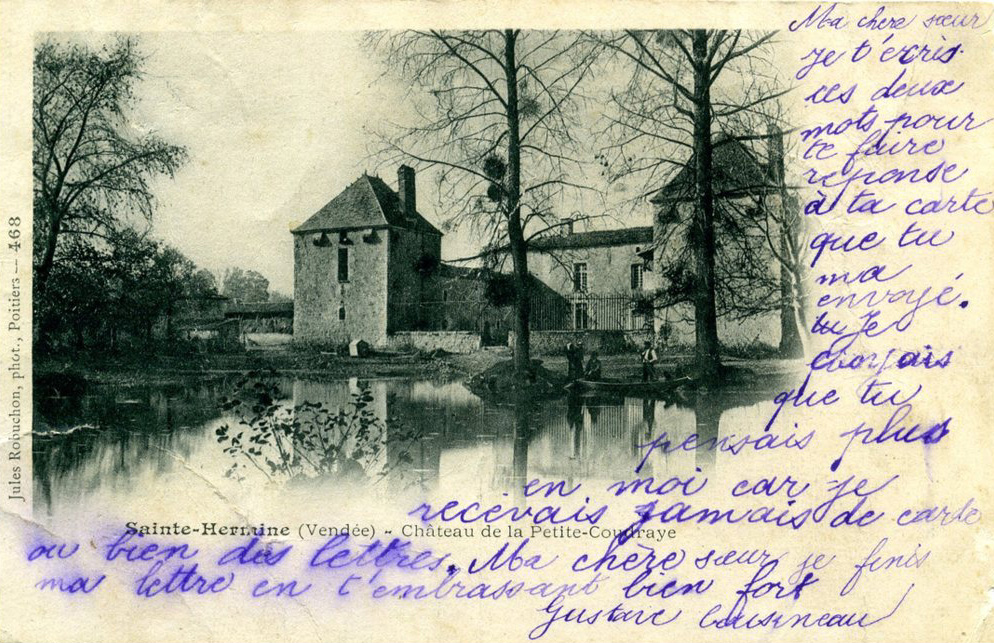 Ma chere sœur
je t'écris
ces deux
mots pour
te faire
réponse
à ta carte
que tu
ma
envoyé.
Je
croyais
que tu
pensais plus
en moi car je
recevais jamais de carte
ou bien des lettres. Ma chère sœur je finis
ma lettre en t'embrassant bien fort
Gustave
Sainte-Hermine (Vendée) - Château de la Petite-Coudraye
Jules Robuchon, phot., Poitiers — 468